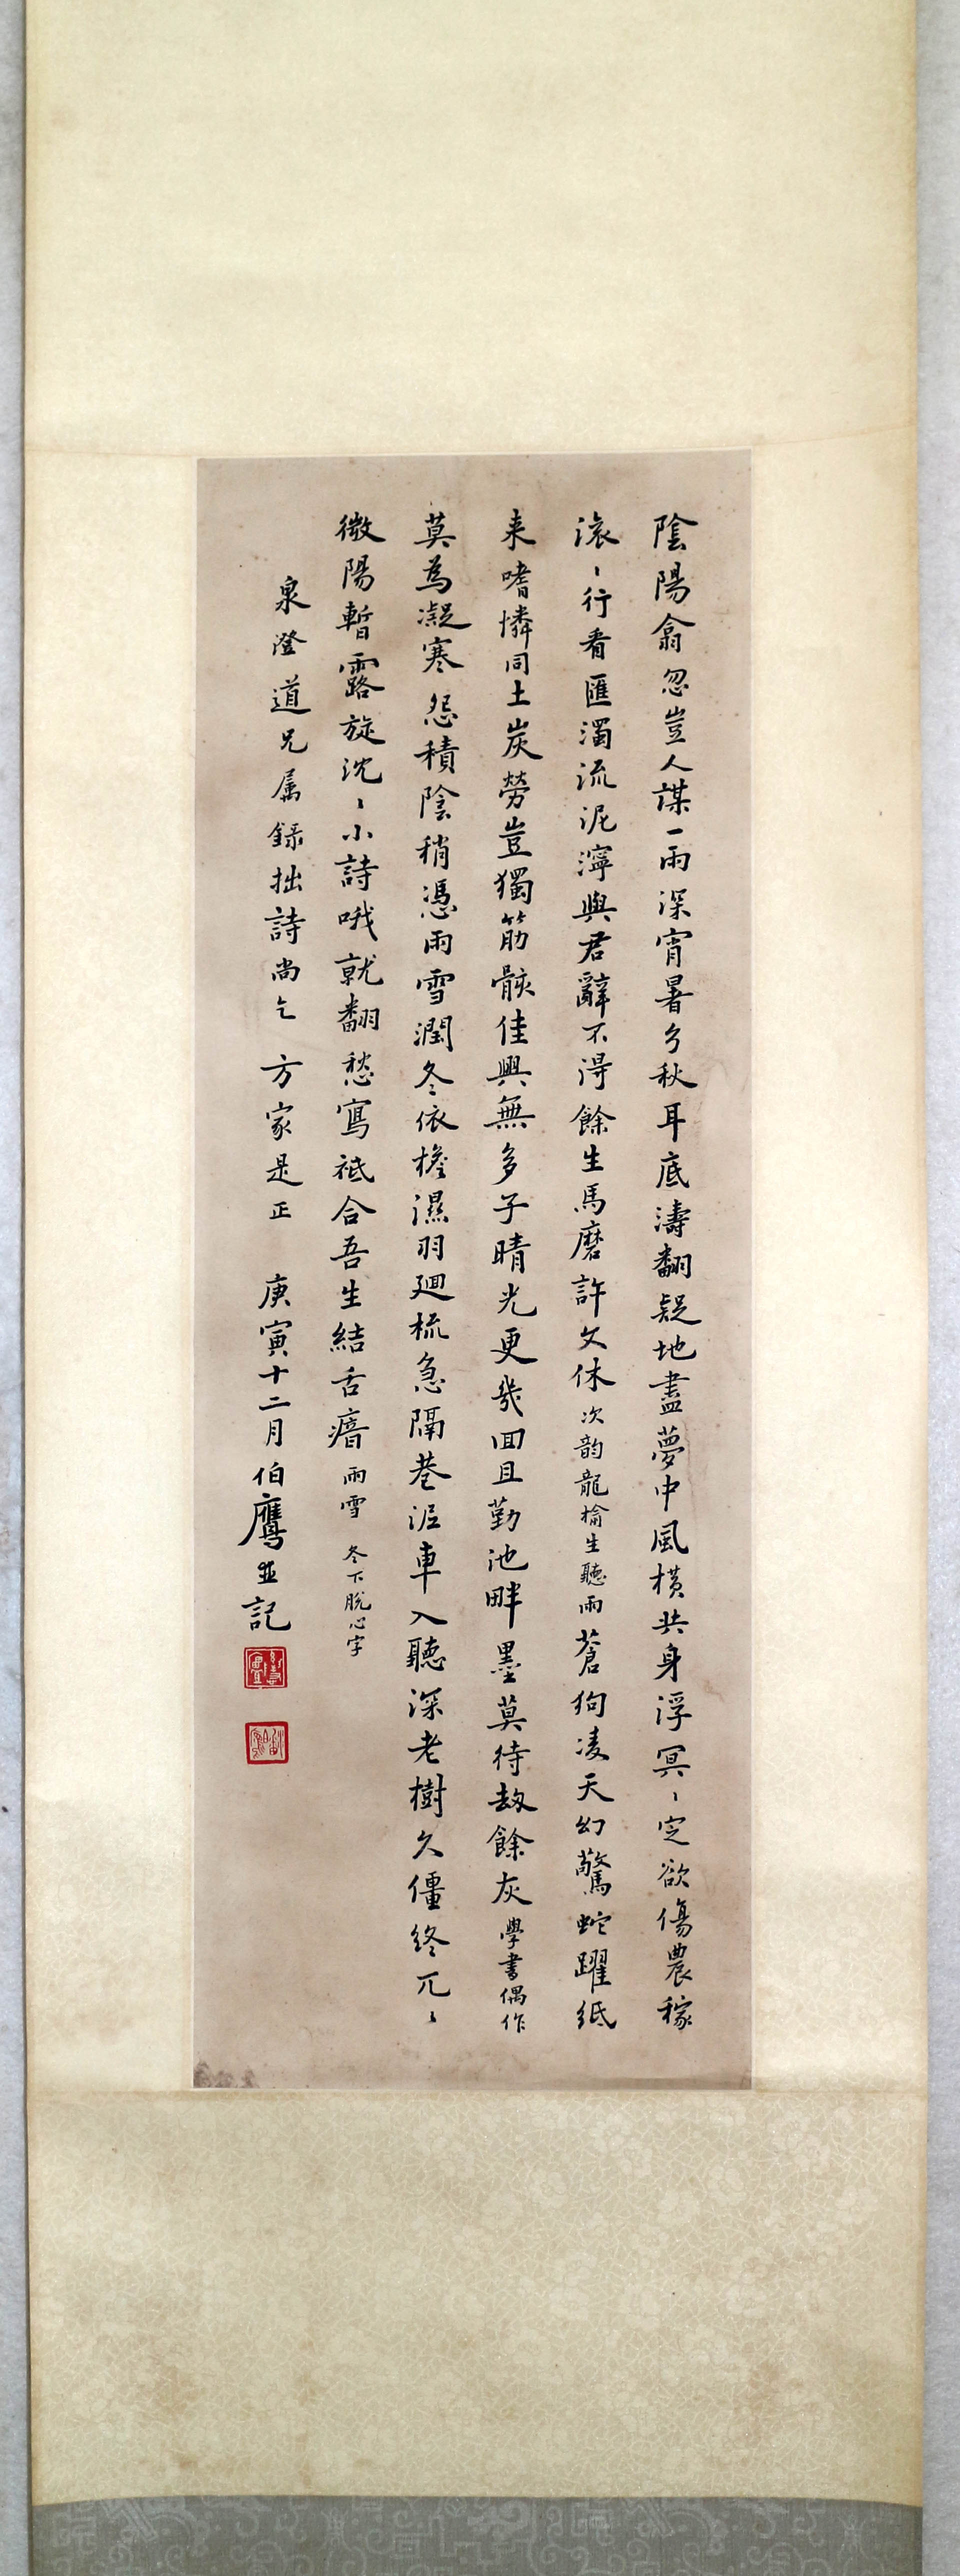 陰陽翕忽豈人謀一雨深宵暑兮秋耳底濤翻疑地盡夢中風橫共身浮冥〻定欲傷農稼
滾〻行看匯濁流泥濘與君辭不得餘生馬磨許文休次韵龍榆生聽雨蒼狗凌天幻驚蛇躍紙
来嗜憐同土炭勞豈獨筋骸佳興無多子晴光更幾回且勤池畔墨莫待劫餘灰學書偶作
莫為凝寒怨積陰稍憑雨雪潤冬依檐濕羽迴梳急隔巷泥車入聽深老樹久僵終兀〻
微陽暫露旋沈〻小詩哦就翻愁寫祗合吾生結舌瘖雨雪 冬下脫心字
泉澄道兄属録拙詩尚乞 方家是正 庚寅十二月伯鷹並記